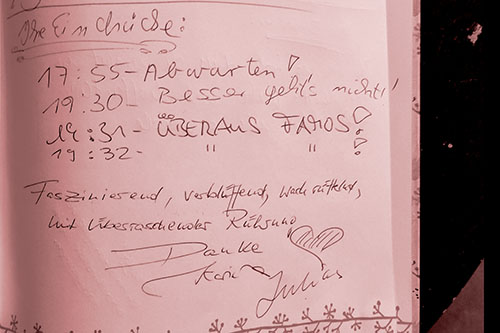 Ihre Eindrücke:
17:55 - Abwarten!
19:30 - Besser geht's nicht!
19:31 - ÜBERAUS FAMOS!
19:32 - " " !
Faszinierend, verblüffend, wachrüttelnd,
mit überraschender Rührung
Danke
Karin
Julian